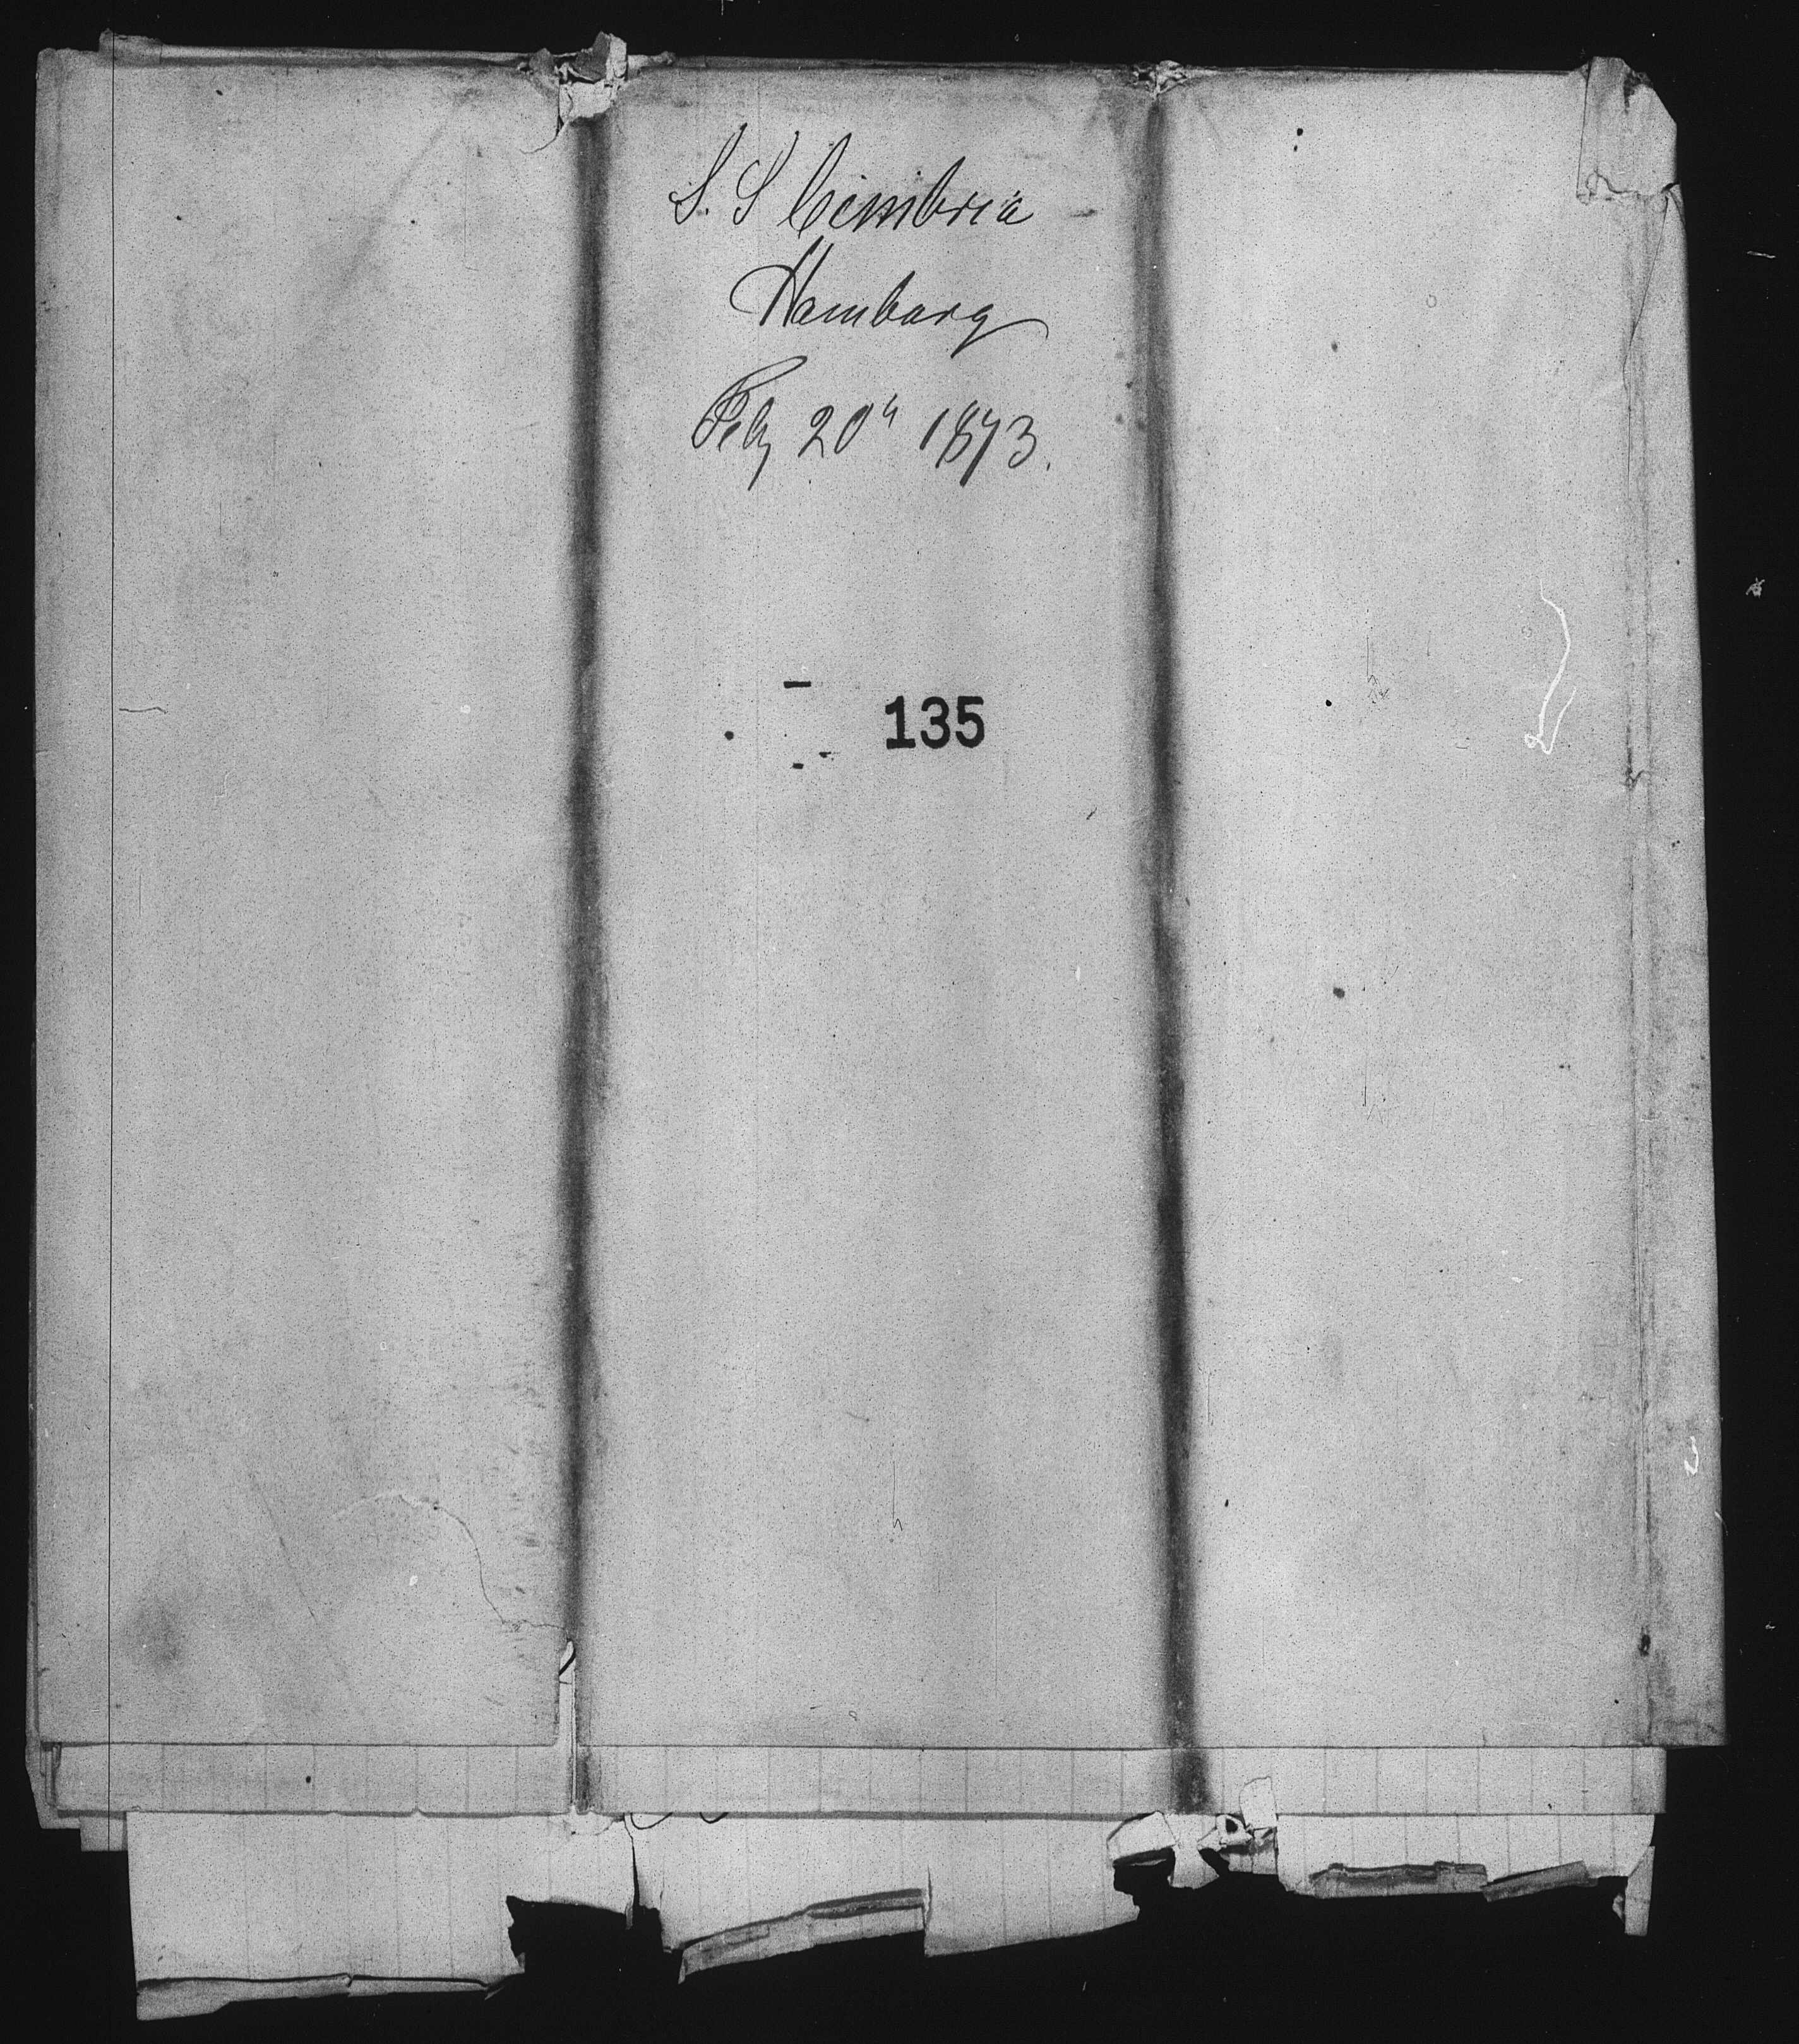 S. S Cimbria
Hamburg
Feby 20th 1873.
135